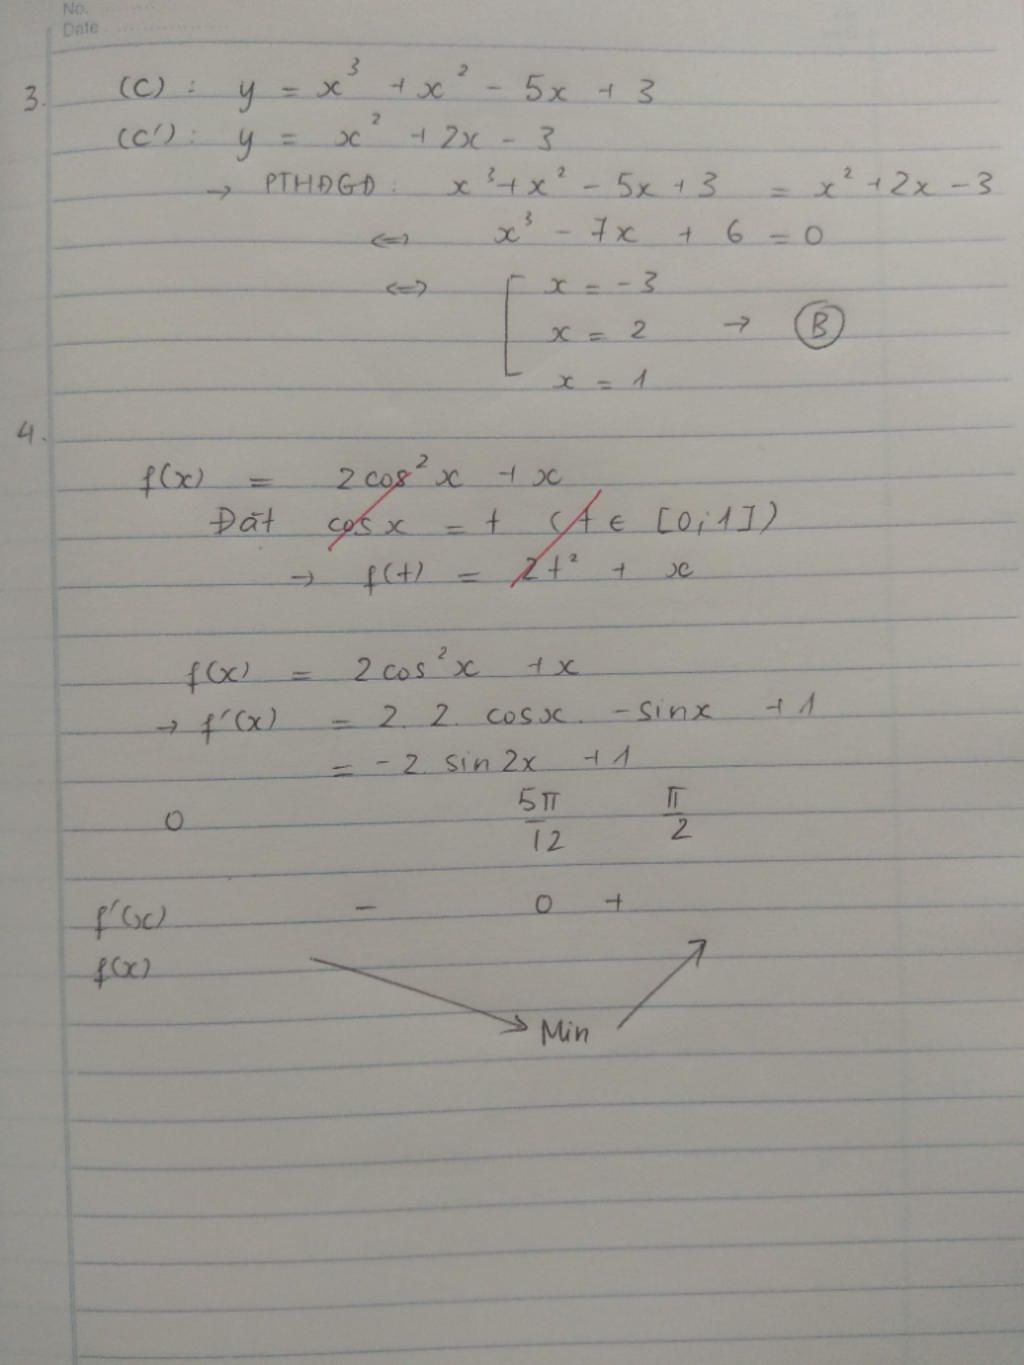 No.
Date
3. (C): y = x³ + x² - 5x + 3
(C'): y = x² + 2x - 3
→ PTHĐGĐ: x³ + x² - 5x + 3 = x² + 2x - 3
⇔ x³ - 7x + 6 = 0
⇔ x = -3
x = 2 → B
x = 1
4.
f(x) = 2cos²x + x
Đặt cosx = t (t ∈ [0;1])
→ f(t) = 2t² + x
f(x) = 2cos²x + x
→ f'(x) = 2. 2. cosx. -sinx + 1
= -2. sin2x + 1
0 5π/12 π/2
f'(x) - 0 +
f(x)
Min